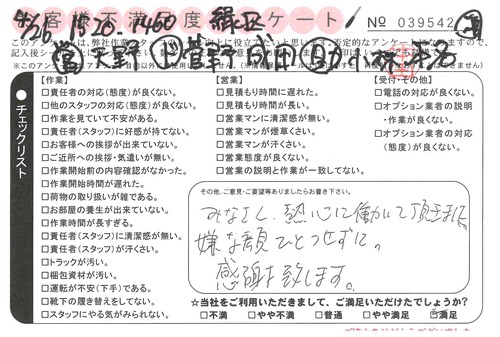 4/26 1528 1450 緑区
お客様不満足度アンケート
No 039542
営 天野 菅野 成田
【作業】
□責任者の対応(態度)が良くない。
□他のスタッフの対応(態度)が良くない。
□作業を見ていて不安がある。
□責任者(スタッフ)に好感が持てない。
□お客様への挨拶が出来ていない。
□ご近所への挨拶・気遣いが無い。
□作業開始前の内容確認がなかった。
□作業開始時間が遅れた。
□荷物の取り扱いが雑である。
□お部屋の養生が出来ていない。
□作業時間が長すぎる。
□責任者(スタッフ)に清潔感が無い。
□責任者(スタッフ)が汗くさい。
□トラックが汚い。
□梱包資材が汚い。
□運転が不安(下手)である。
□靴下の履き替えをしてない。
□スタッフにやる気がみられない。
【営業】
□見積もり時間に遅れた。
□見積もり時間が長い。
□営業マンに清潔感が無い。
□営業マンが煙草くさい。
□営業マンが汗くさい。
□営業態度が良くない。
□営業の説明と作業が一致してない。
【受付・その他】
□電話の対応が良くない。
□オプション業者の説明・作業が良くない。
□オプション業者の対応(態度)が良くない。
●チェックリスト
その他、ご意見・ご要望等ありましたらお書き下さい。
みなさん、熱心に働いて頂きました。
嫌な顔ひとつせずに。
感謝致します。
☆当社をご利用いただきまして、ご満足いただけたでしょうか?
□不満 □やや不満 □普通 □やや満足 ☑満足
ご協力ありがとうございました